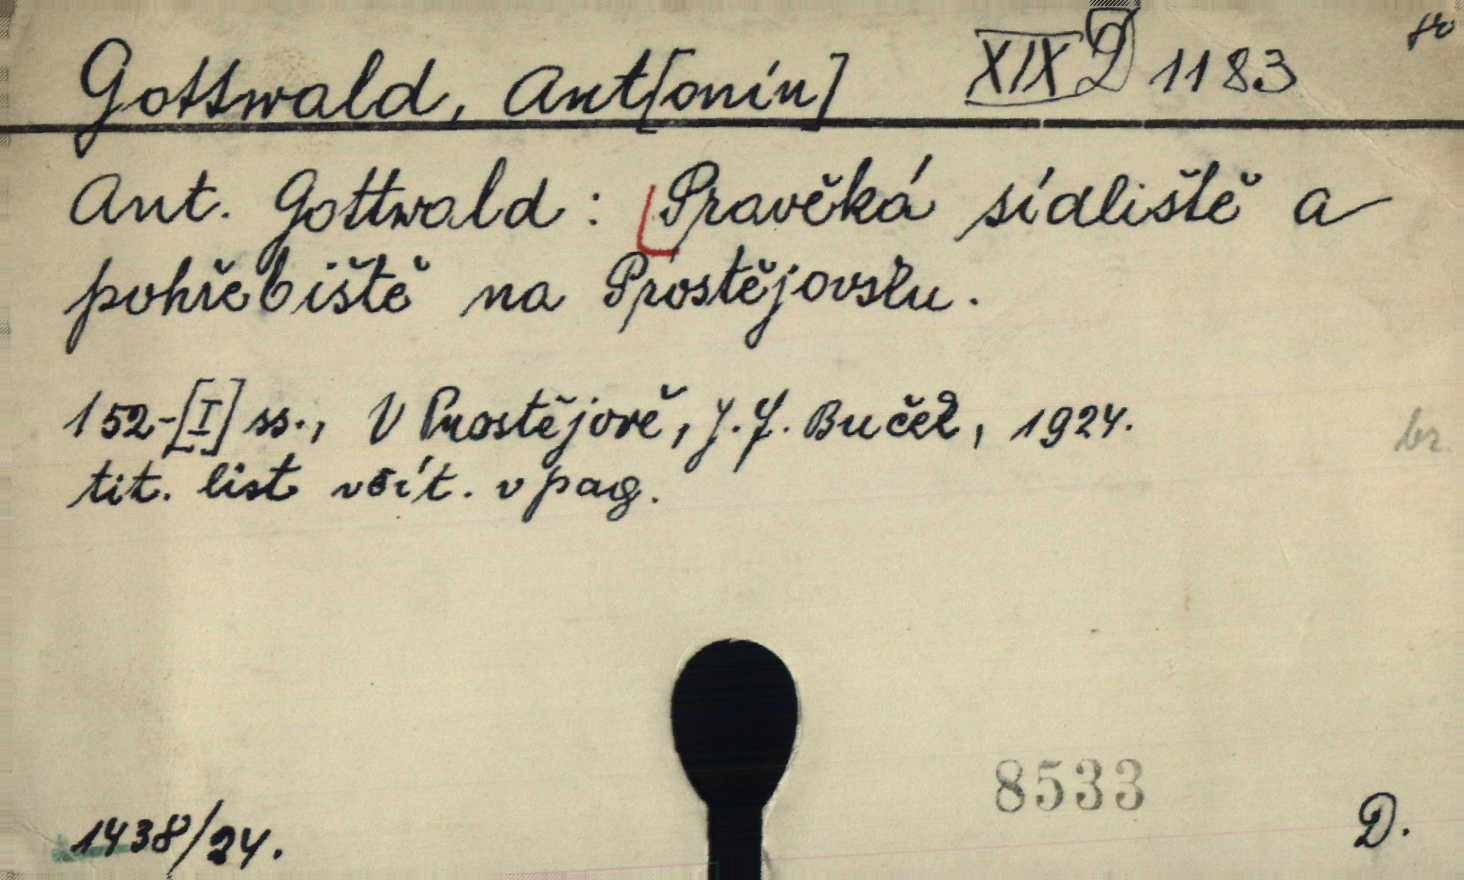 Gottwald, Ant[onín] XIX D 1183
Ant. Gottwald: Pravěká sídliště a
pohřebiště na Prostějovsku.
152-[I] ss., V Prostějově, J.F. Buček, 1924.
tit. list včít. v pag.
br.
8533
1438/24.
D.